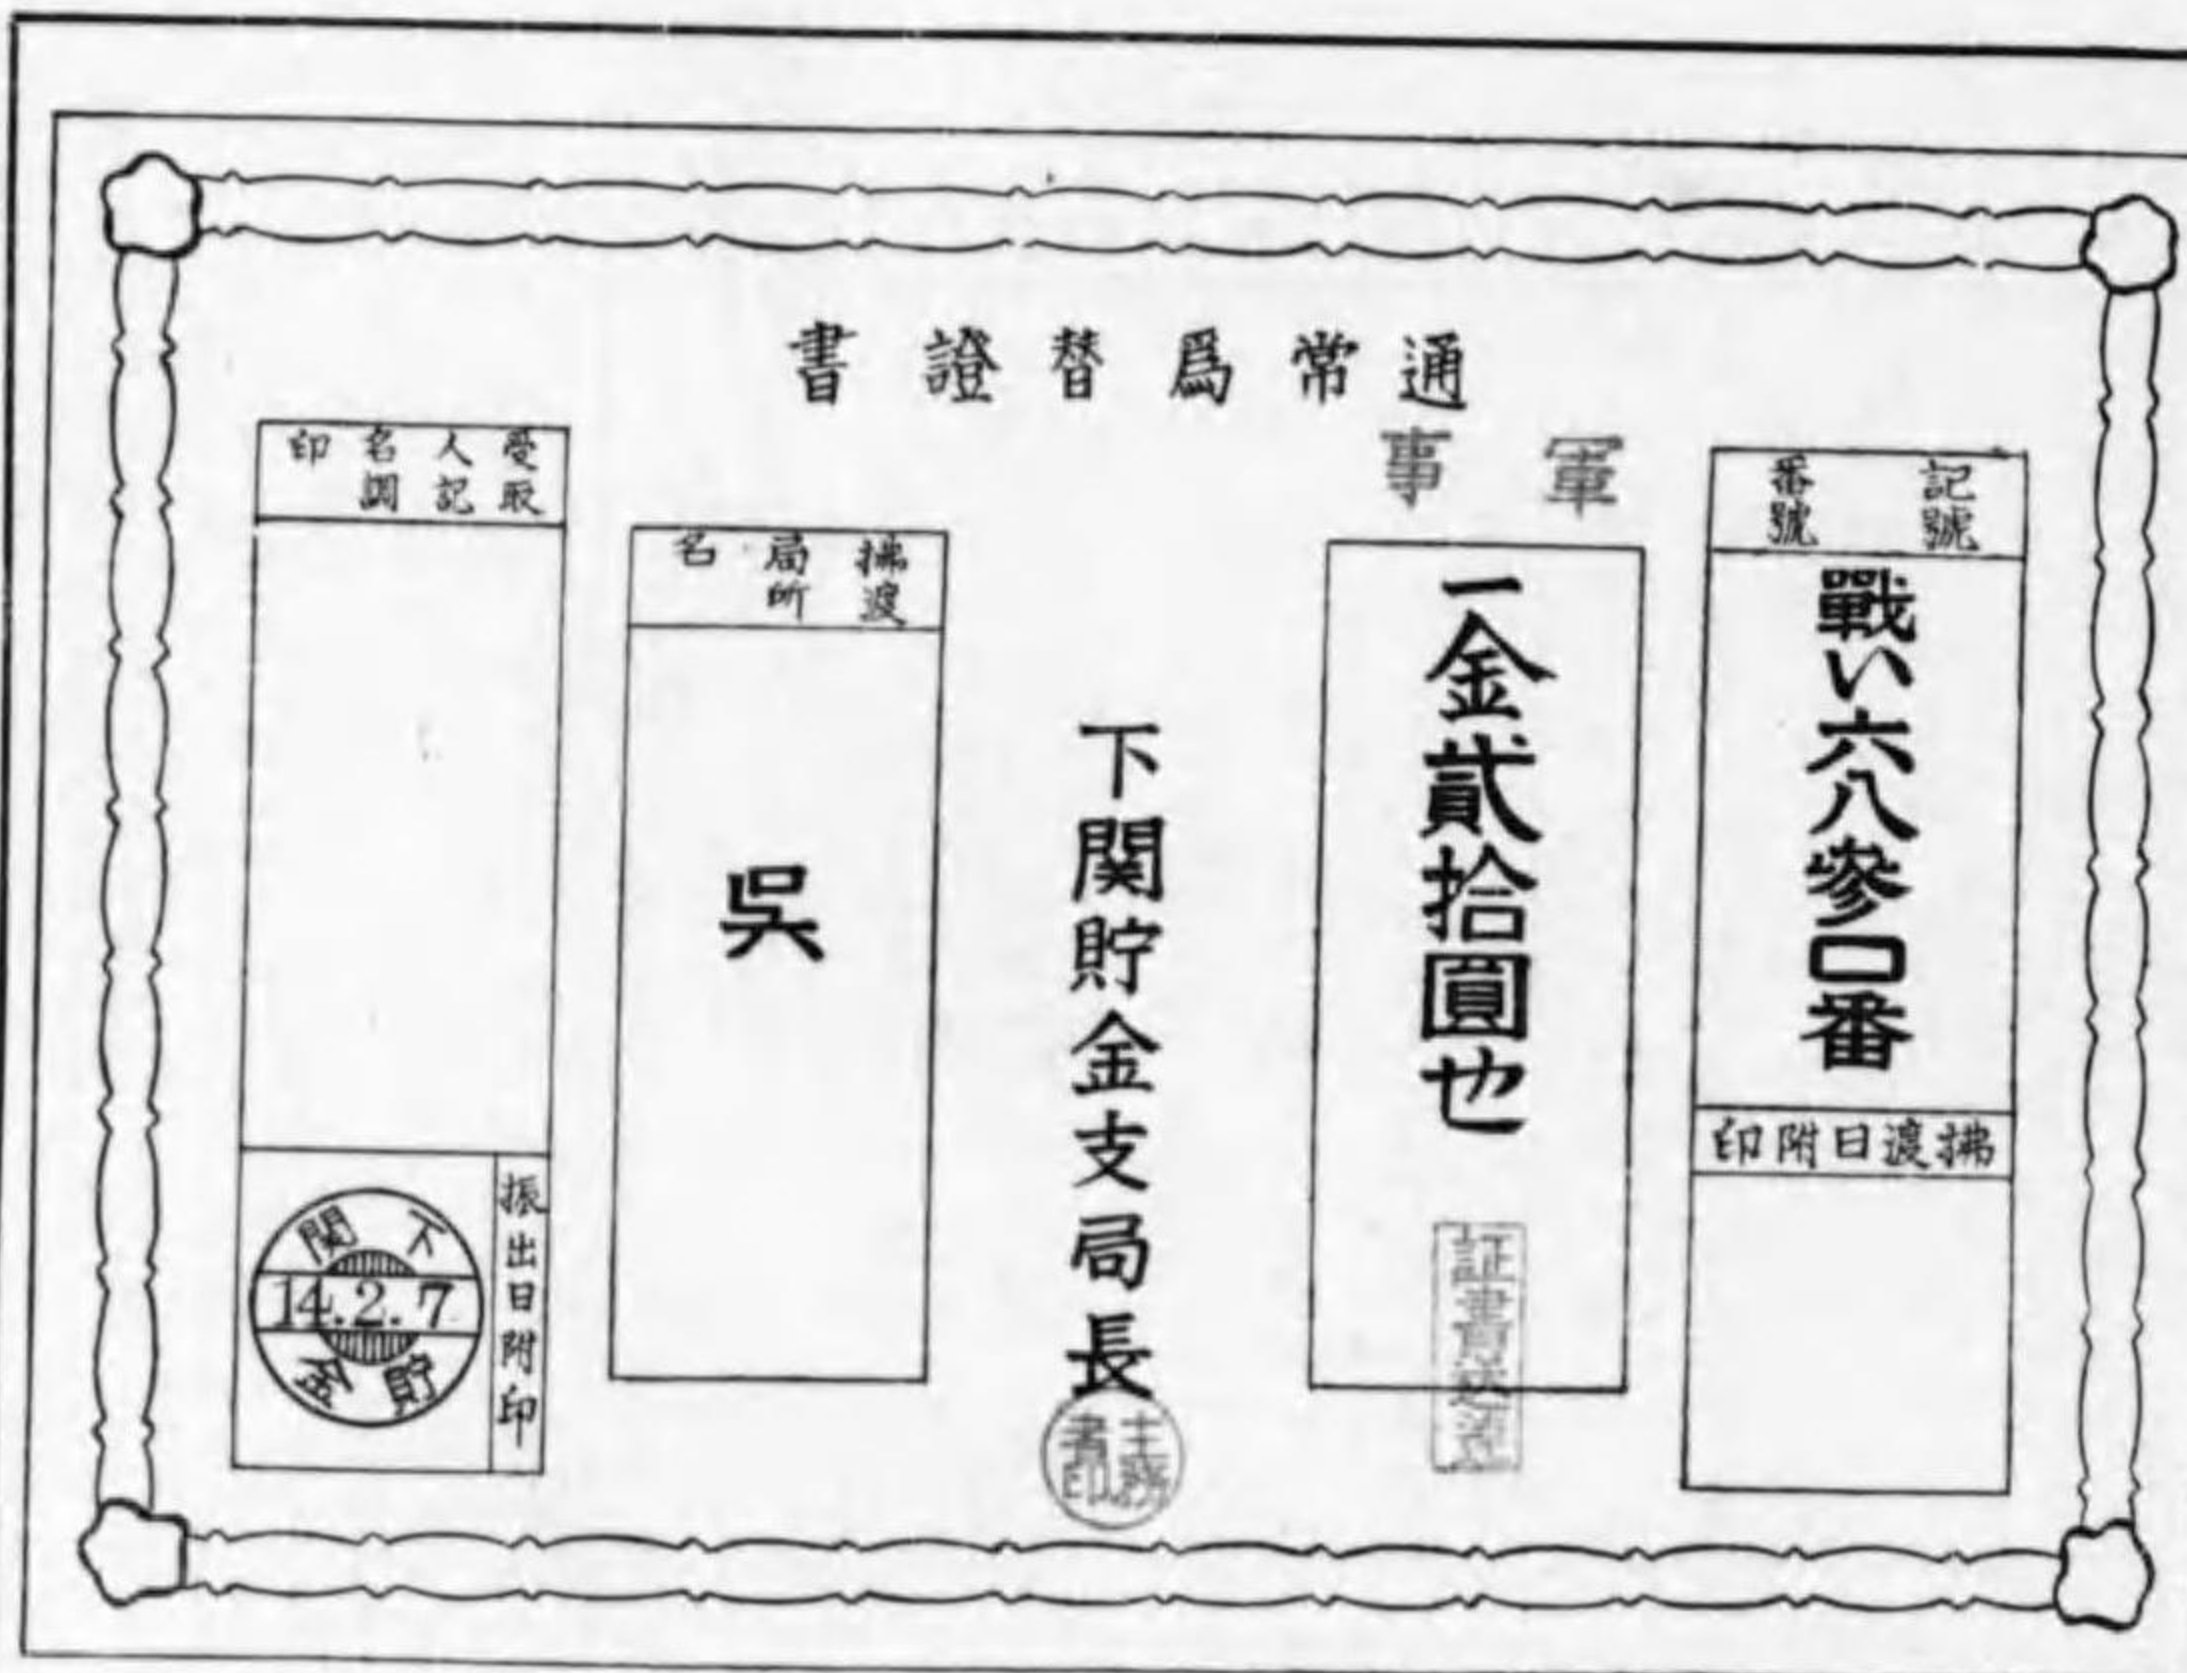 通常爲替證書
軍事
記號
番號
戰い六八參〇番
拂渡日附印
一金貳拾圓也
下関貯金支局長
主務
者印
拂渡
局所
名
呉
受取
人記
名調
印
振出日附印
下関
14.2.7
貯金